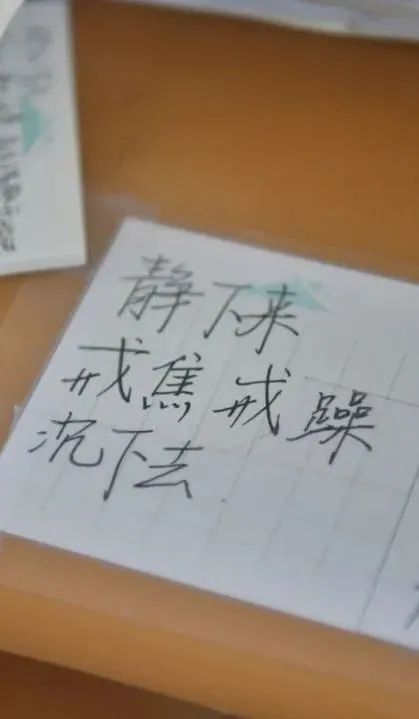 静下来
戒焦戒躁
沉下去